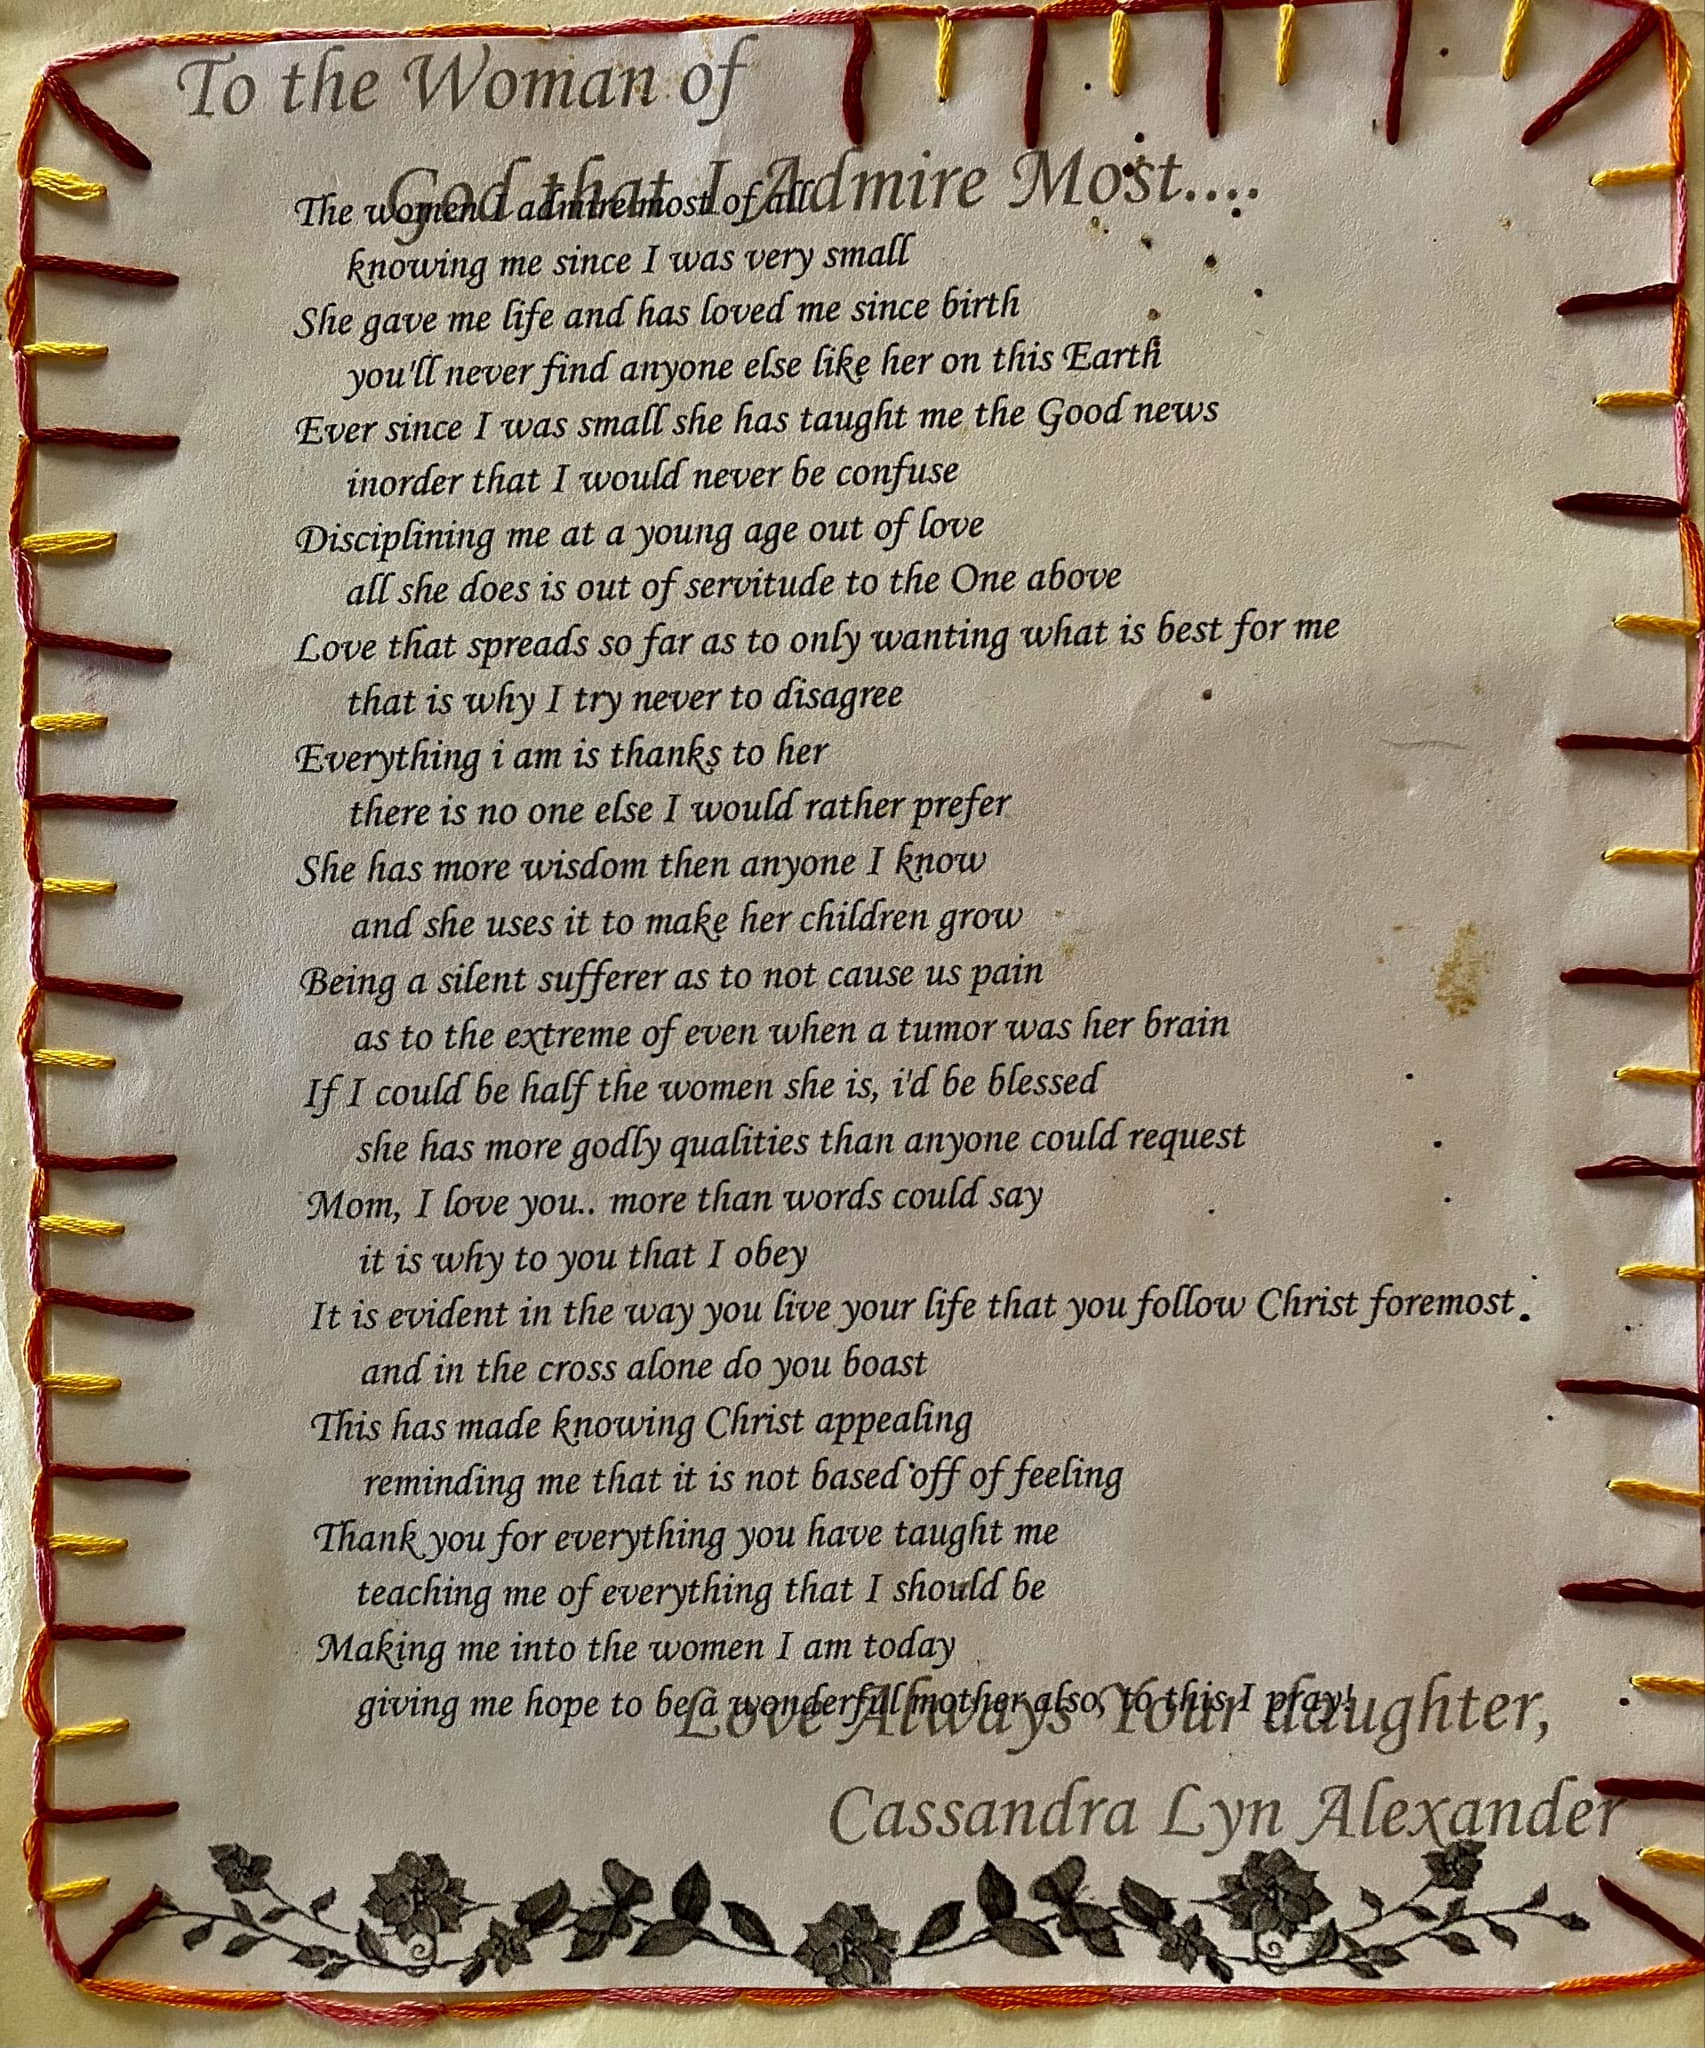 To the Woman of
God that I Admire Most....
The women I admire most of all
knowing me since I was very small
She gave me life and has loved me since birth
you'll never find anyone else like her on this Earth
Ever since I was small she has taught me the Good news
inorder that I would never be confuse
Disciplining me at a young age out of love
all she does is out of servitude to the One above
Love that spreads so far as to only wanting what is best for me
that is why I try never to disagree
Everything i am is thanks to her
there is no one else I would rather prefer
She has more wisdom then anyone I know
and she uses it to make her children grow
Being a silent sufferer as to not cause us pain
as to the extreme of even when a tumor was her brain
If I could be half the women she is, i'd be blessed
she has more godly qualities than anyone could request
Mom, I love you.. more than words could say
it is why to you that I obey
It is evident in the way you live your life that you follow Christ foremost.
and in the cross alone do you boast
This has made knowing Christ appealing
reminding me that it is not based off of feeling
Thank you for everything you have taught me
teaching me of everything that I should be
Making me into the women I am today
giving me hope to be a wonderful mother also, to this I pray!
Love Always Your daughter,
Cassandra Lyn Alexander